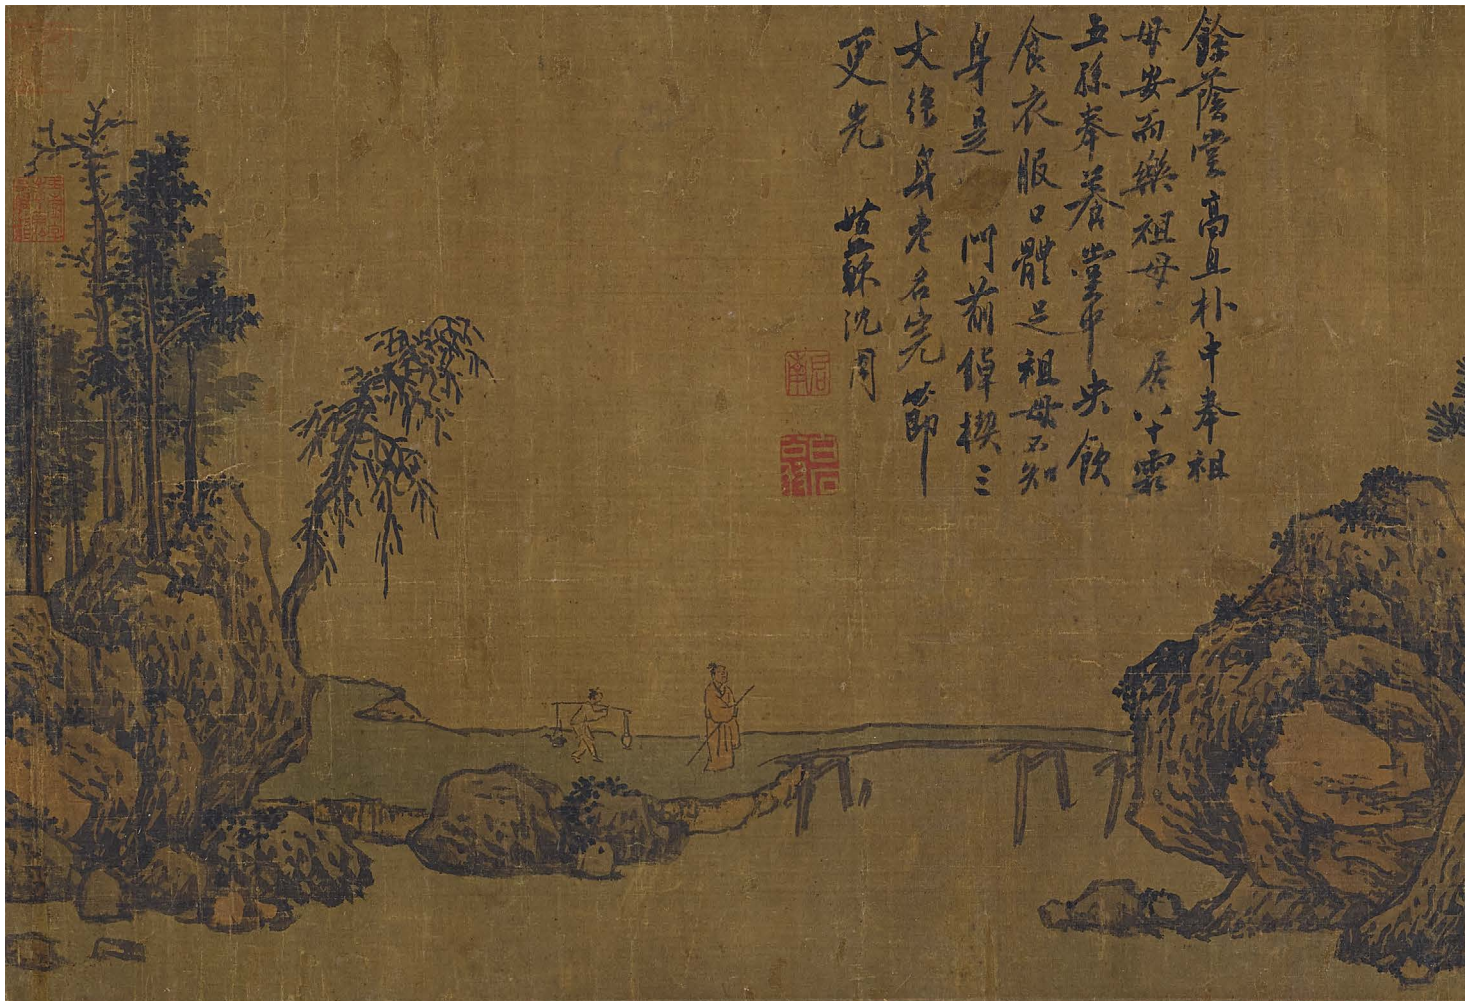 餘蔭堂高且朴中奉祖
母安而樂祖母居八十霜
五孫奉養堂中央飲
食衣服口體足祖母不知
身是 門前綽楔三
丈身老名完節
更光 姑蘇沈周
啟南
白石翁